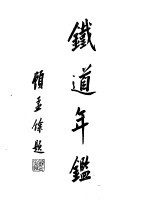 鐵道年鑑
顧孟餘題